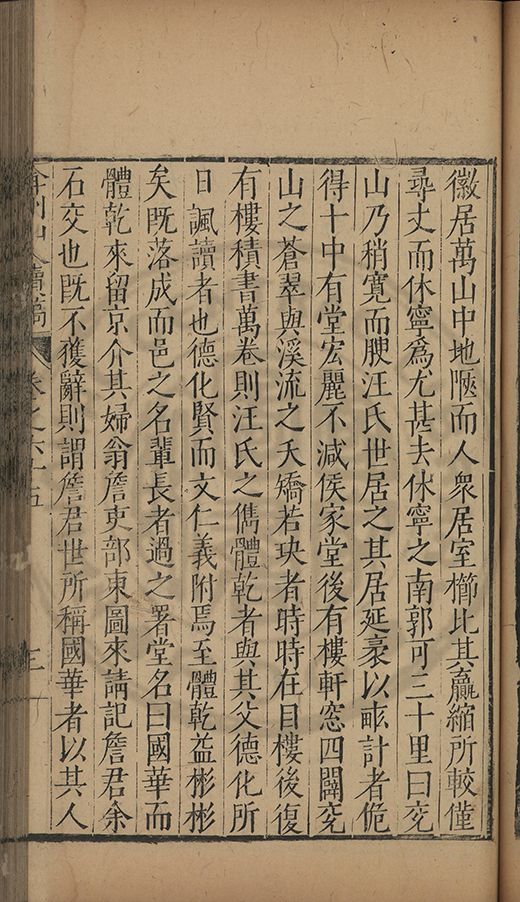 徽居萬山中地陿而人衆居室櫛比其贏縮所較僅
尋丈而休寧爲尤甚去休寧之南郭可三十里曰兖
山乃稍寛而腴汪氏世居之其居延袤以畞計者傹
得十中有堂宏麗不減侯家堂後有樓軒窓四闢兖
山之蒼翠與溪流之夭矯若玦者時時在目樓後復
有樓積書萬卷則汪氏之儁體乾者與其父德化所
日諷讀者也德化賢而文仁義附焉至體乾益彬彬
矣既落成而邑之名輩長者過之署堂名曰國華而
體乾來留京介其婦翁詹吏部東圖來請記詹君余
石交也既不獲辭則謂詹君世所稱國華者以其人
弇州山人續稿 卷之六十五 三